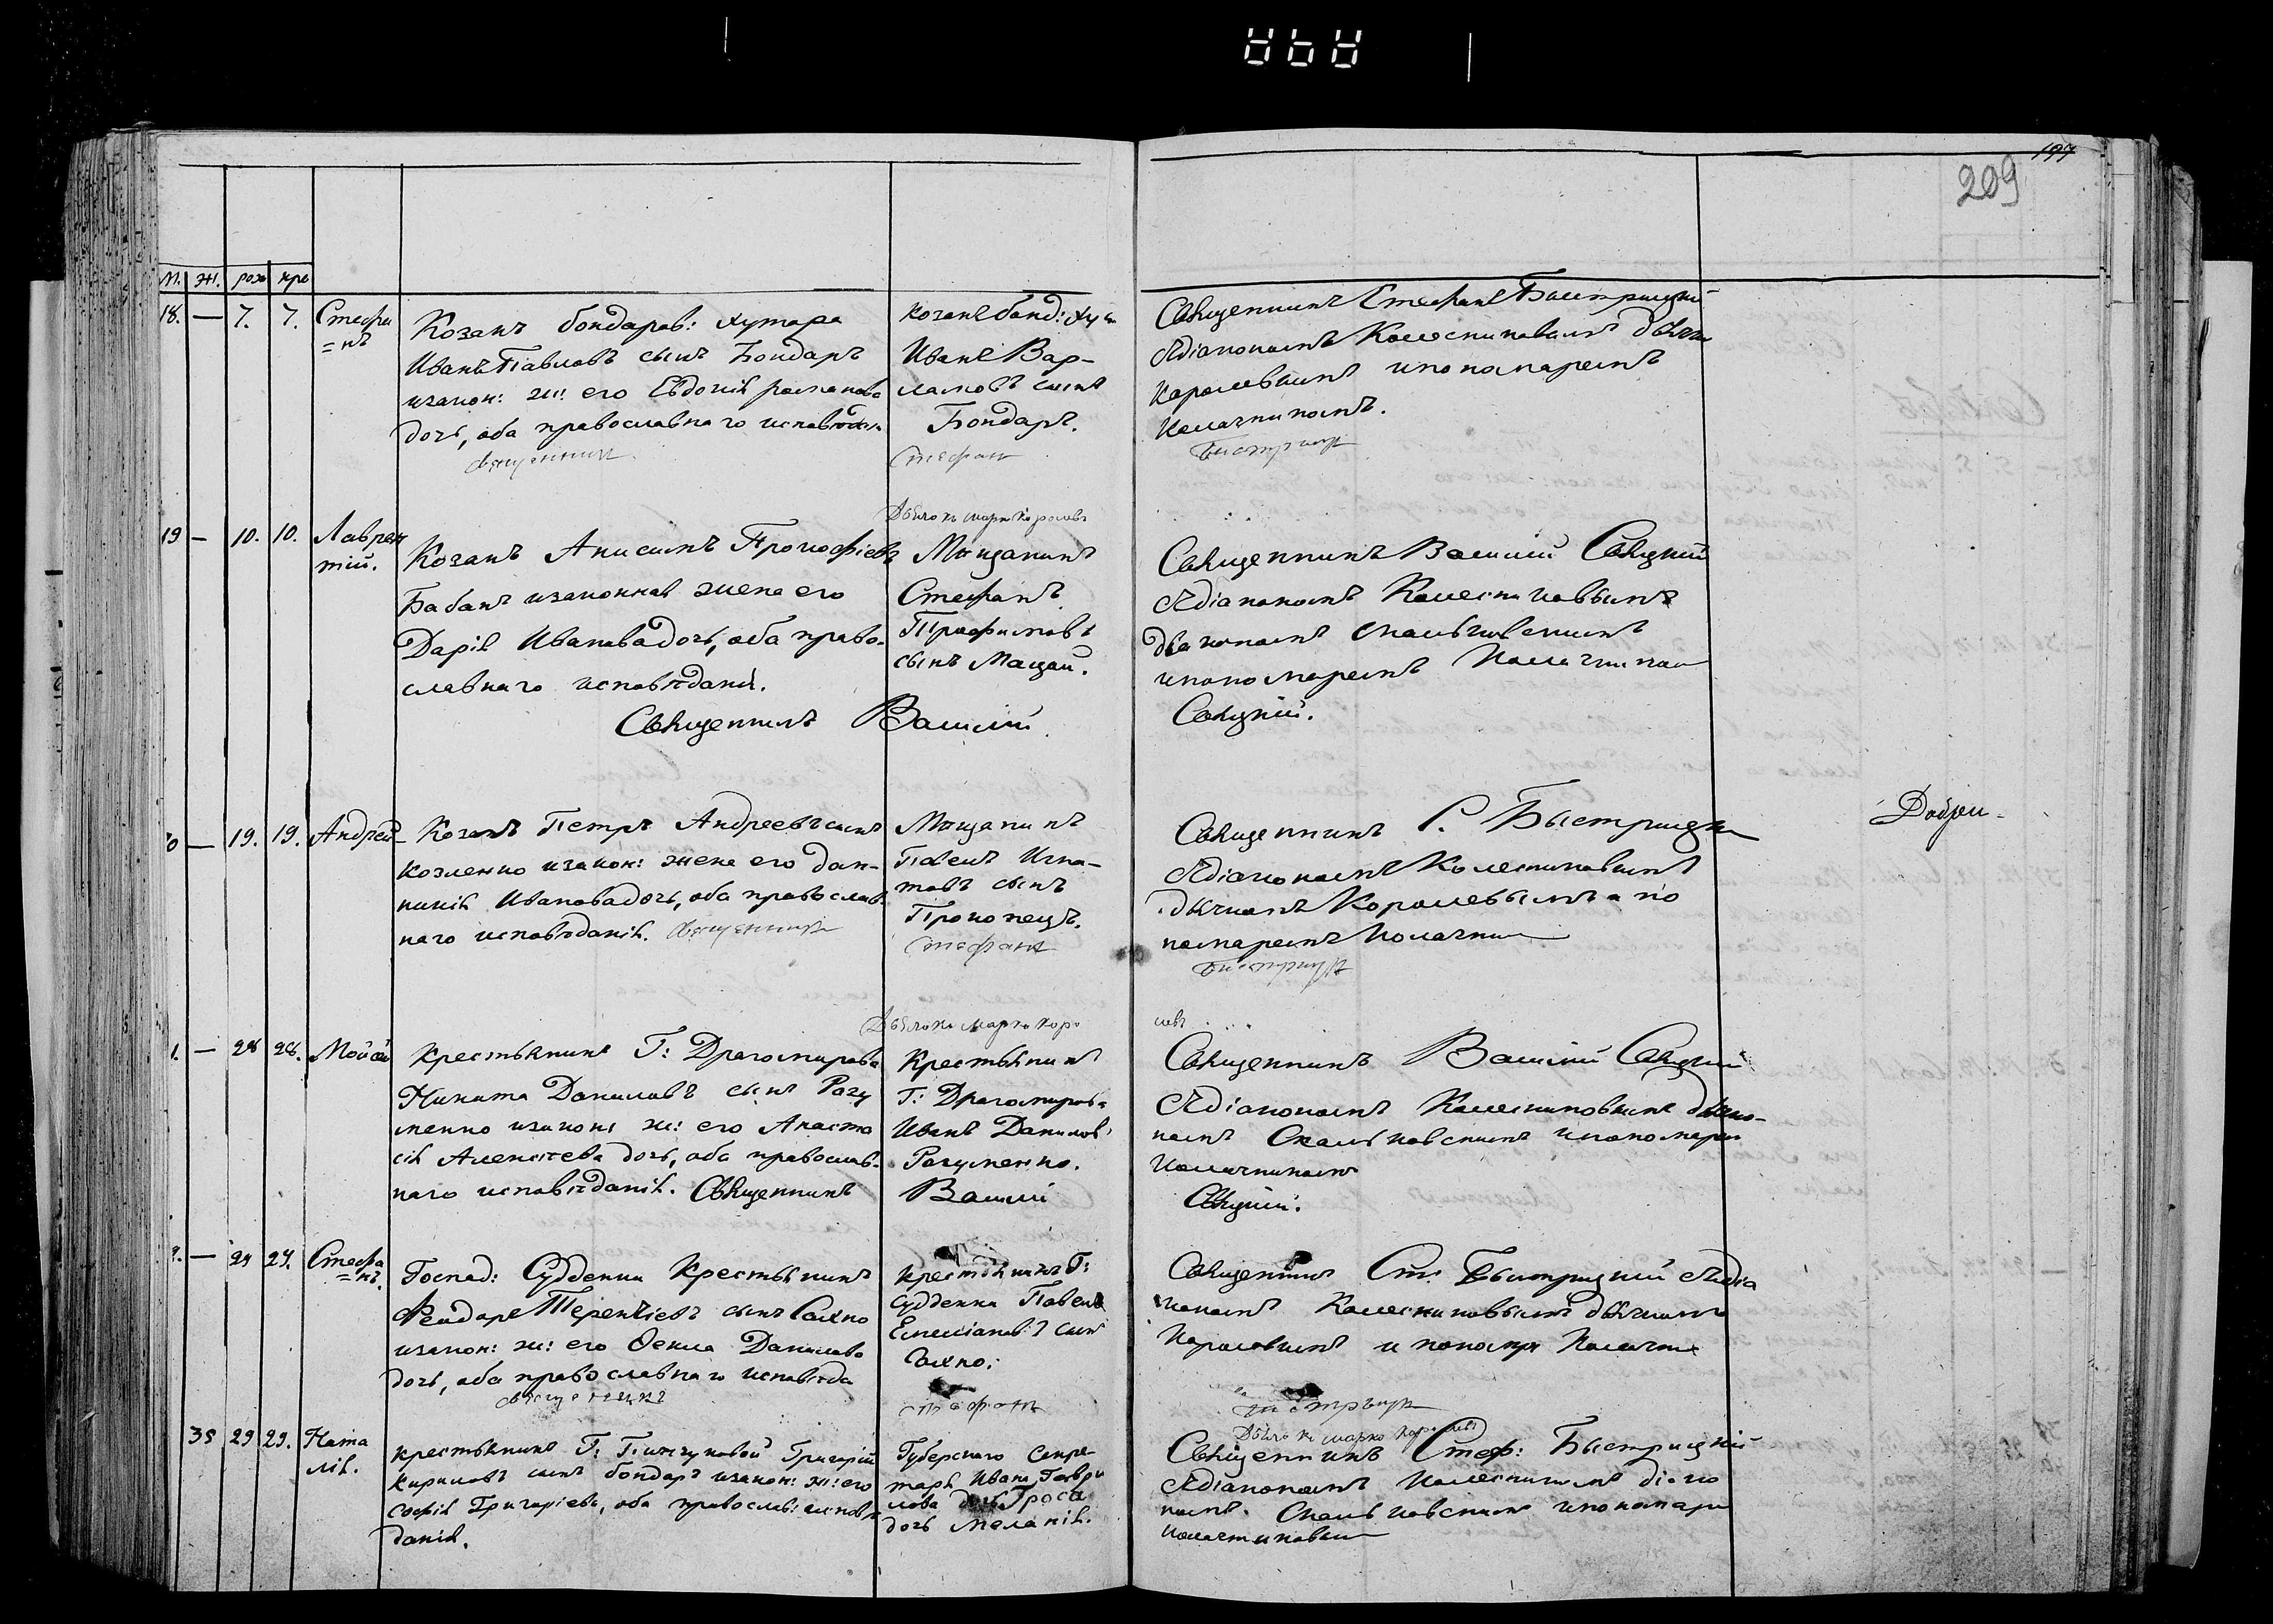 197
209
М. Ж. рож кре
18. — 7. 7. Стефа
=нъ
Козакъ бондарев: хутора
Иванъ Павловъ сынъ Бондаръ
изакон: ж: его Евдокія романова
дочь, оба православнаго исповѣдан
священникъ
козакъ бонд: хут
Иванъ Вар-
ламовъ сынъ
Бондаръ.
Стефанъ
Священникъ Стефанъ Быстрицкій
здіакономъ Колесниковымъ дьячк
Королевымъ ипономаремъ
Калачникомъ.
Быстрицкій
19 — 10. 10. Лаврен
тій.
Козакъ Анисимъ Прокофіевъ
Бабакъ изаконная жена его
Дарія Иванова дочь, оба право-
славнаго исповѣданія.
Священникъ Василій
Дьячокъ Марко Королевъ
Мѣщанинъ
Стефанъ
Трофимовъ
сынъ Мацай.
Священникъ Василій Савицкій
здіакономъ Колесниковымъ
дьякономъ
ипономаремъ Калачником
Савицкій.
0 — 19. 19. Андрей
Козакъ Петръ Андреевъ сынъ
Козленко изакон: жена его
Иванова дочь, оба православ-
наго исповѣданія. священникъ
Мѣщанинъ
Павелъ Игна-
товъ сынъ
Прокопецъ.
Стефанъ
Священникъ С. Быстрицкій
здіакономъ Колесниковымъ
дьячкомъ Королевымъ и по
номаремъ Калачник
Быстрицкій
1. — 28 28. Мойсей
крестьянинъ Г: Драгомирова
Никита Даниловъ сынъ Разу
менко изакон: ж: его Анаста
сія Алексѣева дочь, оба православ-
наго исповѣданія. Священникъ
Дьячокъ Марко Коро
левъ
Крестьянинъ
Г: Драгомирова
Иванъ Даниловъ
Разуменко.
Василій
Священникъ Василій Савицкій
здіакономъ Колесниковымъ дьяко-
номъ ипономарем
Калачникомъ
Савицкій.
— 29 29. Стефа
=нъ
Господ: Судденки Крестьянинъ
Феодоръ Терентіевъ сынъ Сахно
изакон: ж: его Данилова
дочь, оба православнаго исповѣда
священникъ
крестьянинъ Г:
Судденки Павелъ
Емеліановъ сынъ
Сахно.
Стефанъ
Священникъ Ст: Быстрицкій здіа
кономъ Колесниковымъ дьячкомъ
Королевымъ и пономар Калачник
Быстрицкій
35 29 29. Ната
лія.
крестьянинъ Г: Григорій
Кириловъ сынъ бондаръ изакон: ж: его
Софія Григоріева, оба православ: исповѣ
данія.
Губерскаго Секре-
таря Ивана Гаври
лова
дочь Меланія.
Дьячокъ Марко Королевъ
Священникъ Стеф: Быстрицкій
здіакономъ діако
номъ ипономаре
Калачниковым